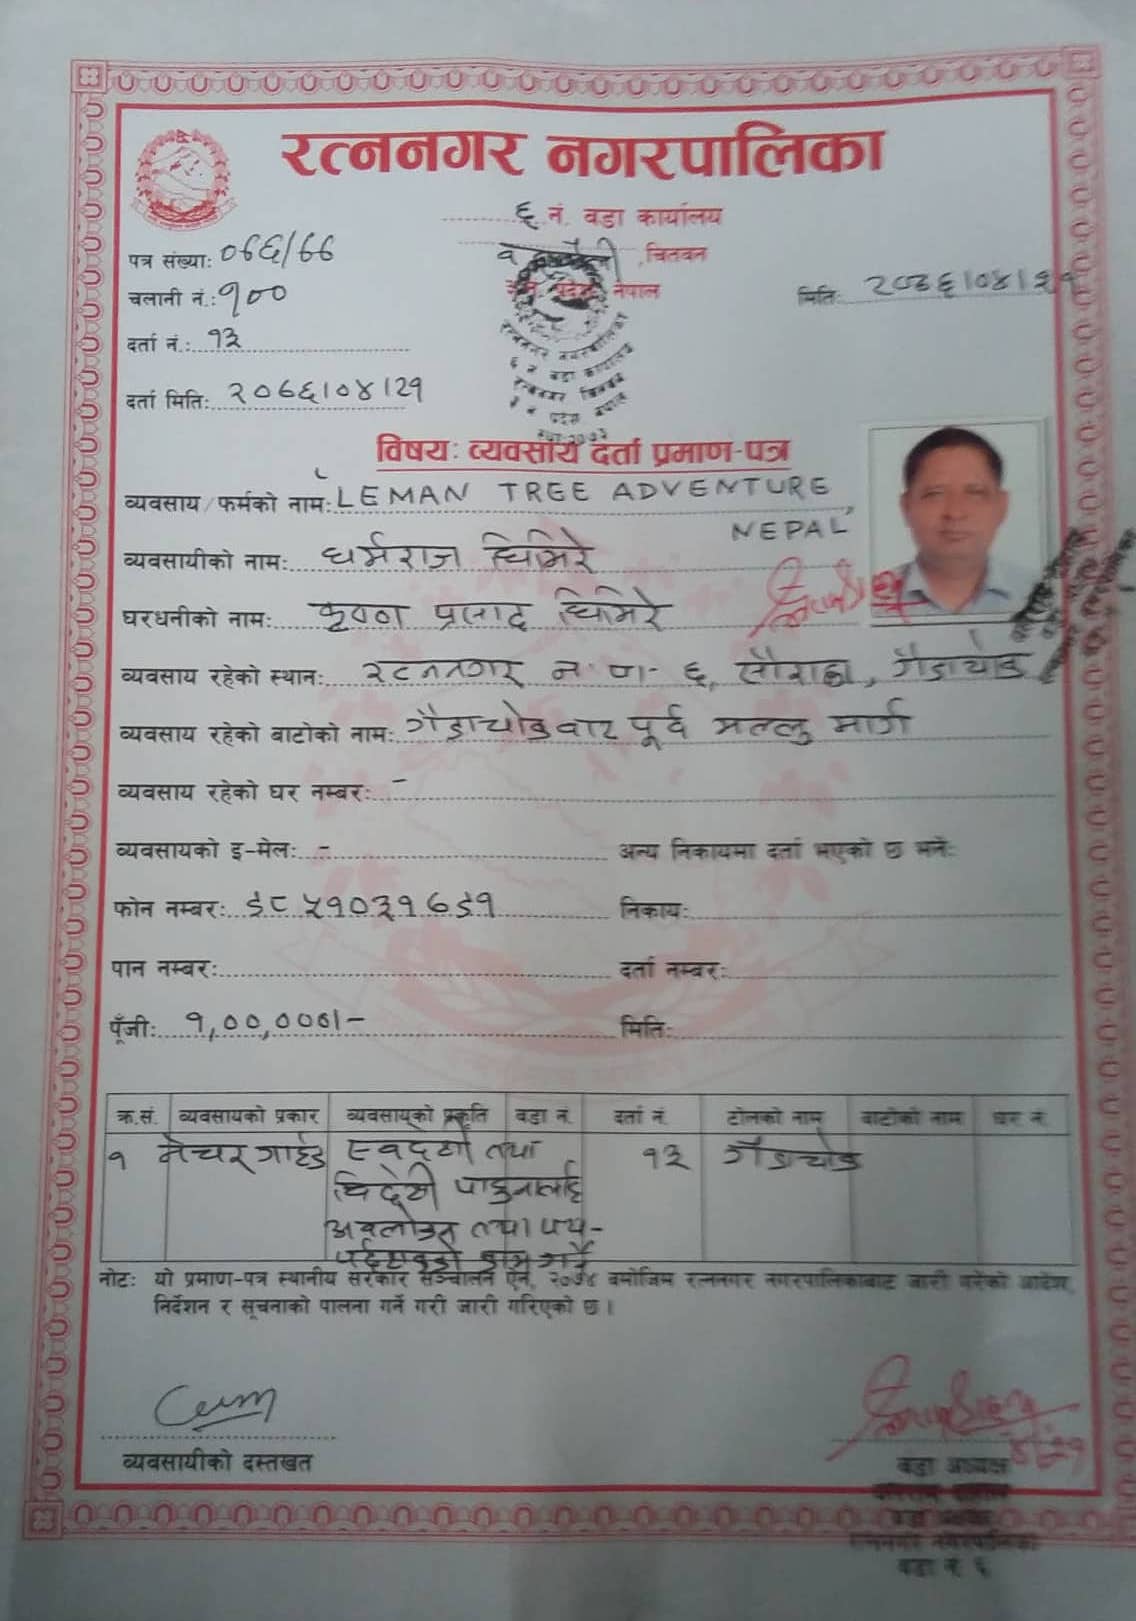 रत्ननगर नगरपालिका
६ नं. वडा कार्यालय
चितवन
पत्र संख्या: ०७६/७७
चलानी नं.: १००
नेपाल
मिति: २०७६।०४।२१
दर्ता नं.: १३
दर्ता मिति: २०७६।०४।२१
रत्ननगर नगरपालिका
६ नं वडा कार्यालय
रत्ननगर चितवन
३ नं प्रदेश नेपाल
विषय: व्यवसाय दर्ता प्रमाण-पत्र
व्यवसाय/फर्मको नाम: LEMAN TREE ADVENTURE
NEPAL
व्यवसायीको नाम: धर्मराज घिमिरे
घरधनीको नाम: कृष्ण प्रसाद घिमिरे
व्यवसाय रहेको स्थान: रत्ननगर न पा- ६, सौराहा, गैडाचोक
व्यवसाय रहेको बाटोको नाम: गैडाचोकबाट पूर्व मार्ग
व्यवसाय रहेको घर नम्बर: -
व्यवसायको इ-मेल: - अन्य निकायमा दर्ता भएको छ भने:
फोन नम्बर: ९८५१०३१७९१ निकाय:
पान नम्बर: दर्ता नम्बर:
पूँजी: १,००,०००।- मिति:
क्र.सं. व्यवसायको प्रकार व्यवसायको प्रकृति वडा नं. दर्ता नं. टोलको नाम बाटोको नाम घर नं.
१ नेचर गाईड स्वदेशी तथा १३ गैडाचोक
विदेशी पाहुनालाई
अवलोकन तथा पथ-
नोट: यो प्रमाण-पत्र स्थानीय सरकार सञ्चालन ऐन, २०७४ बमोजिम रत्ननगर नगरपालिकाबाट जारी गरेको आदेश,
निर्देशन र सूचनाको पालना गर्ने गरी जारी गरिएको छ।
व्यवसायीको दस्तखत
वडा अध्यक्ष
रत्ननगर नगरपालिका
वडा नं. ६